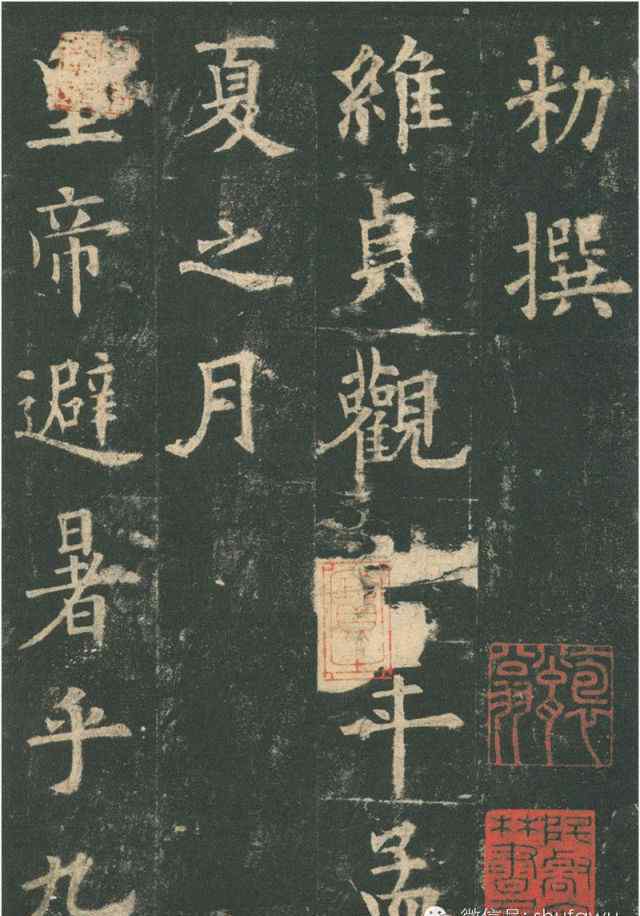 勑撰
維貞觀年孟
夏之月
皇帝避暑乎九
微信号: shufawu